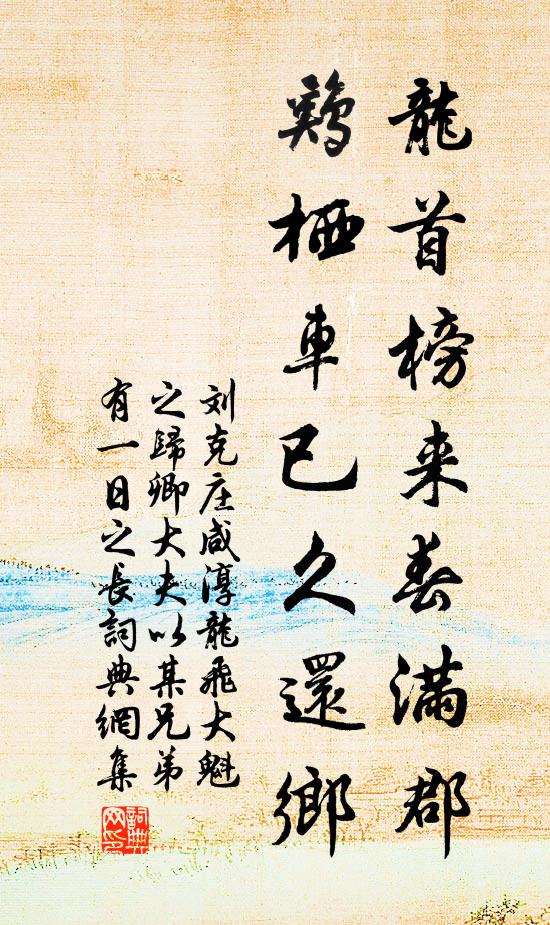 龍首榜来春滿郡
鷄栖車已久還鄉
刘克庄咸淳龍飛大魁
之歸卿大夫以某兄弟
有一日之长詞典網集
詞典网印